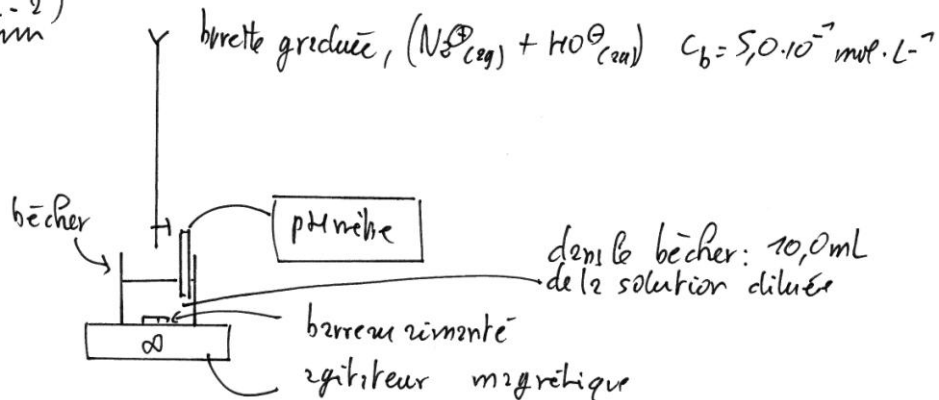 burette graduée, (Na⊕(aq) + HO⊖(aq)) Cb = 5,0.10⁻¹ mol.L⁻¹
bêcher
pHmètre
dans le bêcher: 10,0mL
de la solution diluée
barreau aimanté
agitateur magnétique